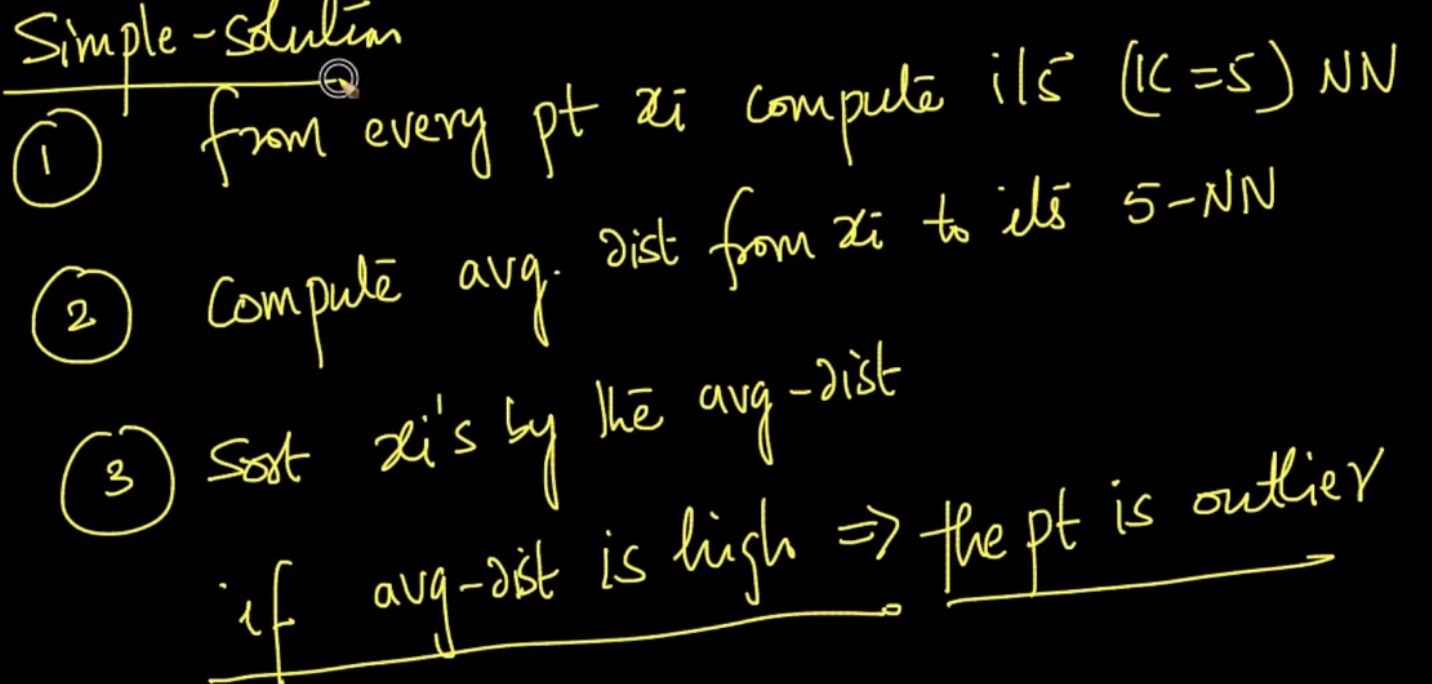 Simple-solution
① from every pt xi compute its (K=5) NN
② Compute avg. dist from xi to its 5-NN
③ Sort xi's by the avg-dist
if avg-dist is high => the pt is outlier